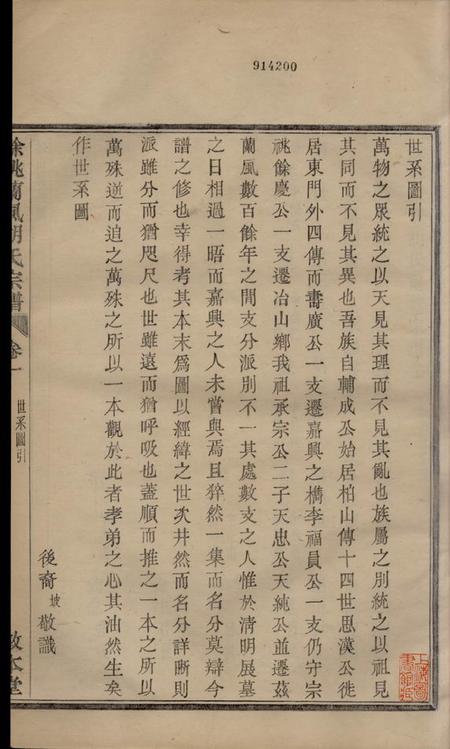 914200
世系圖引
萬物之眾統之以天見其理而不見其亂也族屬之別統之以祖見
其同而不見其異也吾族自輔成公始居柏山傳十四世思漢公徙
居東門外四傳而壽廣公一支遷嘉興之檇李福員公一支仍守宗
祧餘慶公一支遷冶山鄉我祖承宗公二子天忠公天純公並遷茲
蘭風數百餘年之間支分派別不一其處數支之人惟於清明展墓
之日相過一晤而嘉興之人未嘗與焉且猝然一集而名分莫辯今
譜之修也幸得考其本末為圖以經緯之世次井然而名分詳晰則
派雖分而猶咫尺也世雖遠而猶呼吸也蓋順而推之一本之所以
萬殊逆而追之萬殊之所以一本觀於此者孝弟之心其油然生矣
作世系圖
後裔坡敬識
餘姚蘭風胡氏宗譜
卷一
世系圖引
敦本堂
上海圖書館藏